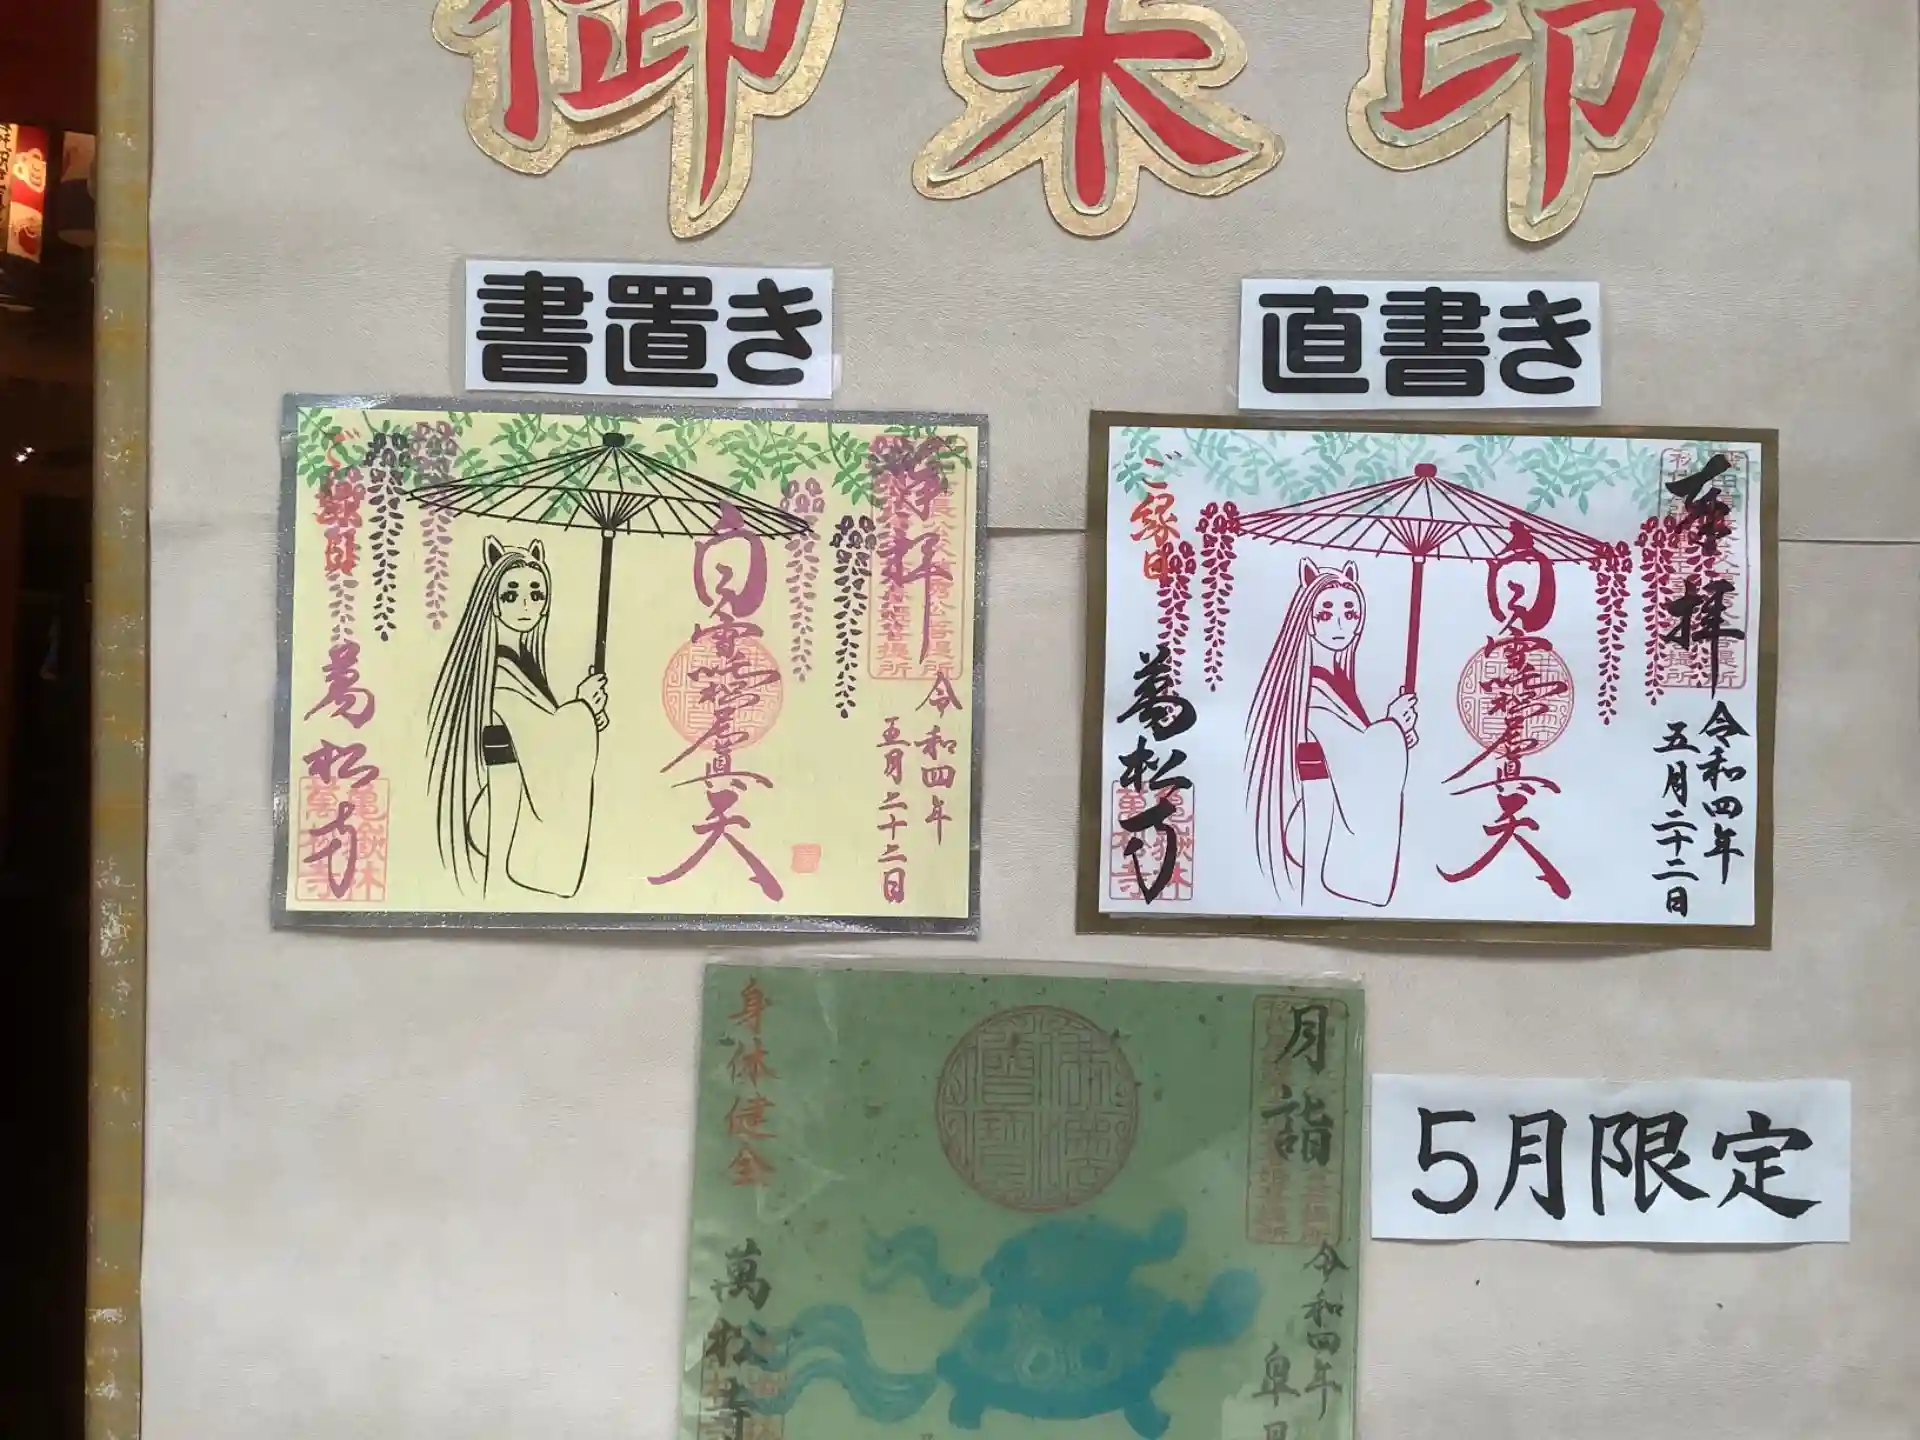 御朱印
書置き
直書き
奉拝
令和四年
五月二十二日
白雪稲荷眞天
ご縁日
萬松寺
奉拝
令和四年
五月二十二日
ご縁日
萬松寺
月詣
令和四年
皐月
身体健全
萬松寺
5月限定